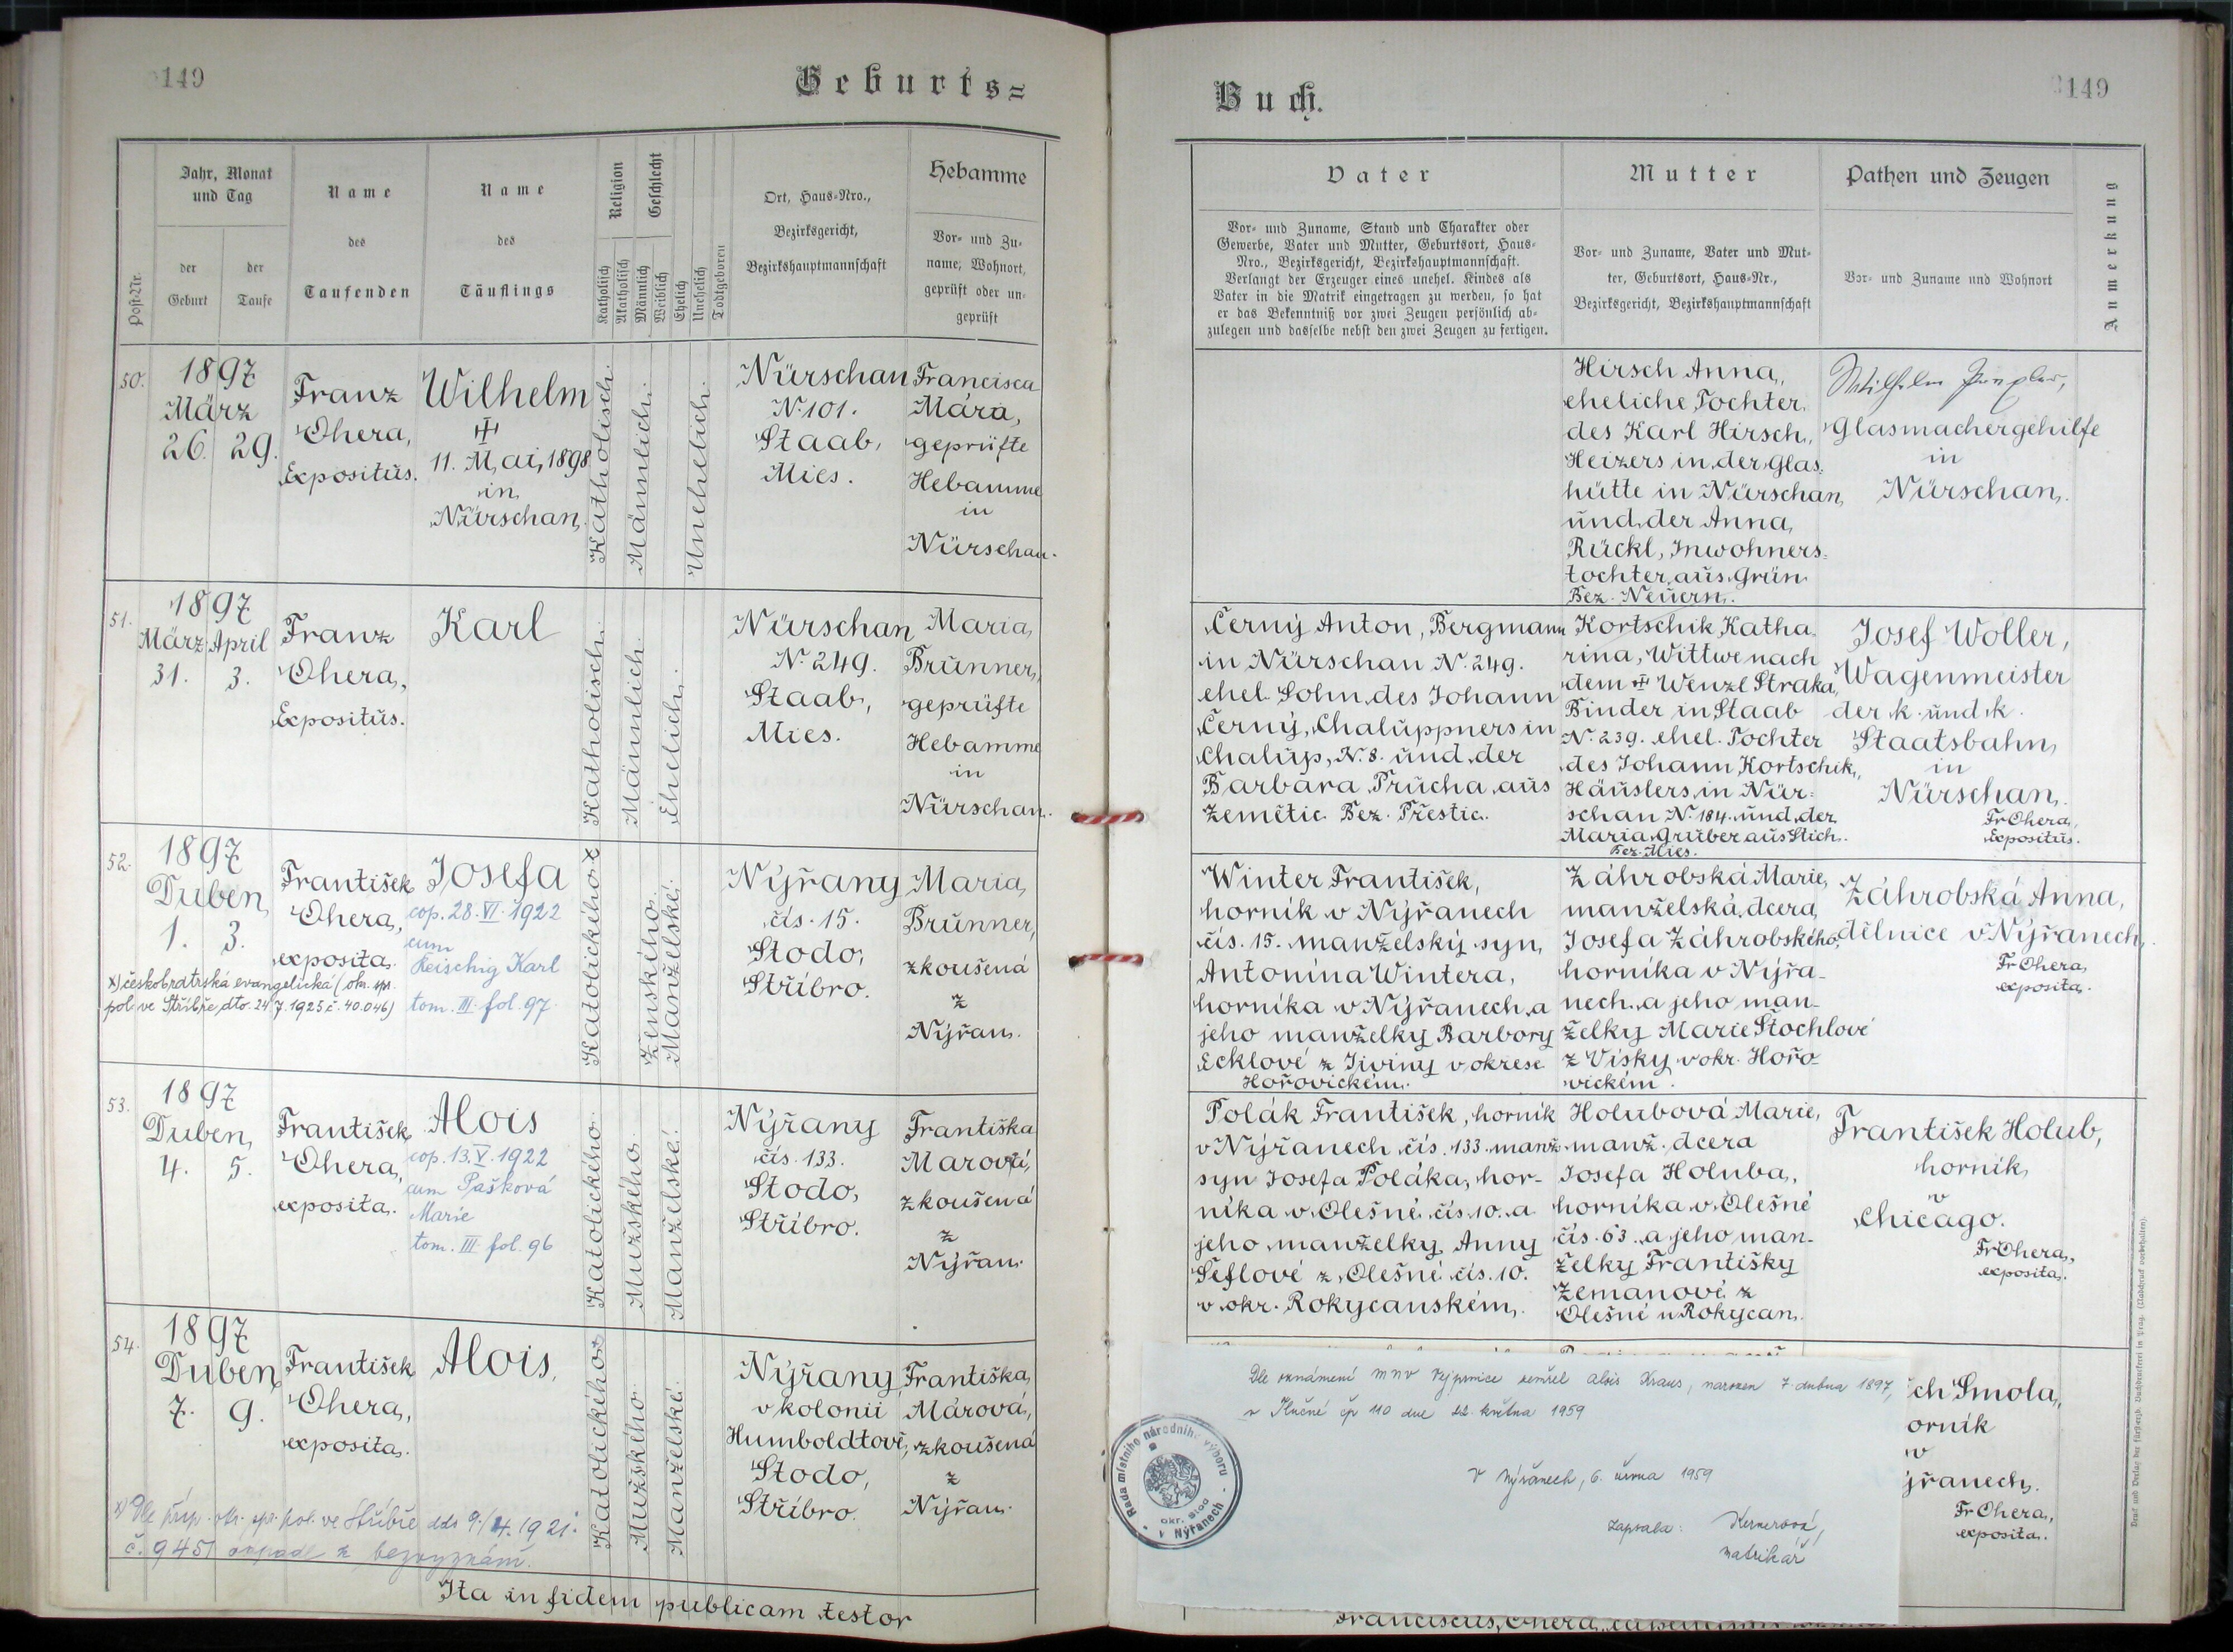 149
Geburts=
Jahr, Monat
und Tag
Post-Nr.
der
Geburt
der
Taufe
Name
des
Taufenden
Name
des
Täuflings
Religion
Geschlecht
Katholisch
Akatholisch
Männlich
Weiblich
Ehelich
Unehelich
Todtgeboren
Ort, Haus-Nro.,
Bezirksgericht,
Bezirkshauptmannschaft
Hebamme
Vor- und Zu-
name, Wohnort,
geprüft oder un-
geprüft
50.
1897
März
26. 29.
Franz
Ohera,
Expositus.
Wilhelm
11. Mai, 1898
in
Nürschan.
Katholisch.
Männlich.
Unehelich.
Nürschan
N. 101.
Staab,
Mies.
Francisca
Mára,
geprüfte
Hebamme
in
Nürschan.
51.
1897
März April
31. 3.
Franz
Ohera,
Expositus.
Karl
Katholisch.
Männlich.
Ehelich.
Nürschan
N. 249.
Staab,
Mies.
Maria
Brunner,
geprüfte
Hebamme
in
Nürschan.
52.
1897
Duben
1. 3.
František
Ohera,
exposita.
x) českobratrská evangelická (okr. spr.
pol. ve Stříbře dto. 24.7.1925 č. 40.046)
Josefa
cop. 28. VI. 1922
cum
Reischig Karl
tom. III. fol. 97.
Katolického x
Ženského.
Manželské.
Nýřany
čís. 15.
Stodo,
Stříbro.
Maria
Brunner,
zkoušená
z
Nýřan.
53.
1897
Duben
4. 5.
František
Ohera,
exposita.
Alois
cop. 13. V. 1922
cum Pašková
Marie
tom. III. fol. 96
Katolického.
Mužského.
Manželské.
Nýřany
čís. 133.
Stodo,
Stříbro.
Františka
zkoušená
z
Nýřan.
54.
1897
Duben
7. 9.
František
Ohera,
exposita.
Alois.
x) Dle příp. okr. spr. pol. ve Stříbře ddo 9./4. 1921.
č. 9451 k bezvyznání.
Katolického x
Mužského.
Manželské.
Nýřany
v kolonii
Humboldtově,
Stodo,
Stříbro.
Františka
Márová,
zkoušená
z
Nýřan.
Ita in fidem publicam testor
Buch.
149
Vater
Vor- und Zuname, Stand und Charakter oder
Gewerbe, Vater und Mutter, Geburtsort, Haus-
Nro., Bezirksgericht, Bezirkshauptmannschaft.
Verlangt der Erzeuger eines unehel. Kindes als
Vater in die Matrik eingetragen zu werden, so hat
er das Bekenntniß vor zwei Zeugen persönlich ab-
zulegen und dasselbe nebst den zwei Zeugen zu fertigen.
Mutter
Vor- und Zuname, Vater und Mut-
ter, Geburtsort, Haus-Nr.,
Bezirksgericht, Bezirkshauptmannschaft
Pathen und Zeugen
Vor- und Zuname und Wohnort
Anmerkung
Hirsch Anna,
eheliche Tochter
des Karl Hirsch,
Heizers in der Glas-
hütte in Nürschan
und der Anna
Rückl, Inwohners-
tochter aus Grün
Bez. Neuern.
Wilhelm
Glasmachergehilfe
in
Nürschan.
Černý Anton, Bergmann
in Nürschan N. 249.
ehel. Sohn des Johann
Černý, Chaluppners in
Chalup, N. 8. und der
Barbara Průcha aus
Zemětic Bez. Přestic.
Kortschik Katha-
rina, Wittwe nach
dem Wenzl Straka,
Binder in Staab
N. 239. ehel. Tochter
des Johann Kortschik,
Häuslers in Nür-
schan N. 184. und der
Maria Gruber aus Stich.
Bez. Mies.
Josef Woller,
Wagenmeister
der k. und k.
Staatsbahn,
in
Nürschan.
Fr Ohera,
Expositus.
Winter František,
horník v Nýřanech
čís. 15. manželský syn,
Antonína Wintera,
horníka v Nýřanech a
jeho manželky Barbory
Ecklové z Jiviny v okrese
Hořovickém.
Záhrobská Marie,
manželská dcera
Josefa Záhrobského,
horníka v Nýřa-
nech a jeho man-
želky Marie Štochlové
z Vísky v okr. Hořo-
vickém.
Záhrobská Anna,
dělnice v Nýřanech.
Fr Ohera,
exposita.
Polák František, horník
v Nýřanech čís. 133. manž.
syn Josefa Poláka, hor-
níka v Olešné čís. 10. a
jeho manželky Anny
Šeflové z Olešné čís. 10.
v okr. Rokycanském.
Holubová Marie,
manž. dcera
Josefa Holuba,
horníka v Olešné
čís. 63. a jeho man-
želky Františky
Zemanové z
Olešné u Rokycan.
František Holub,
horník
v
Chicago.
Fr Ohera,
exposita.
Dle oznámení MNV Vejprnice zemřel Alois Kraus, narozen 7. dubna 1897,
v Tlučné čp 110 dne 22. května 1959
V Nýřanech, 6. června 1959
Zapsala: Kernerová,
matrikář
Rada místního národního výboru
v Nýřanech
okr. Stod
ch Smola,
orník
v
ýřanech.
Fr Ohera,
exposita.
Druck und Verlag der fürsterzb. Buchdruckerei in Prag. (Nachdruck vorbehalten).